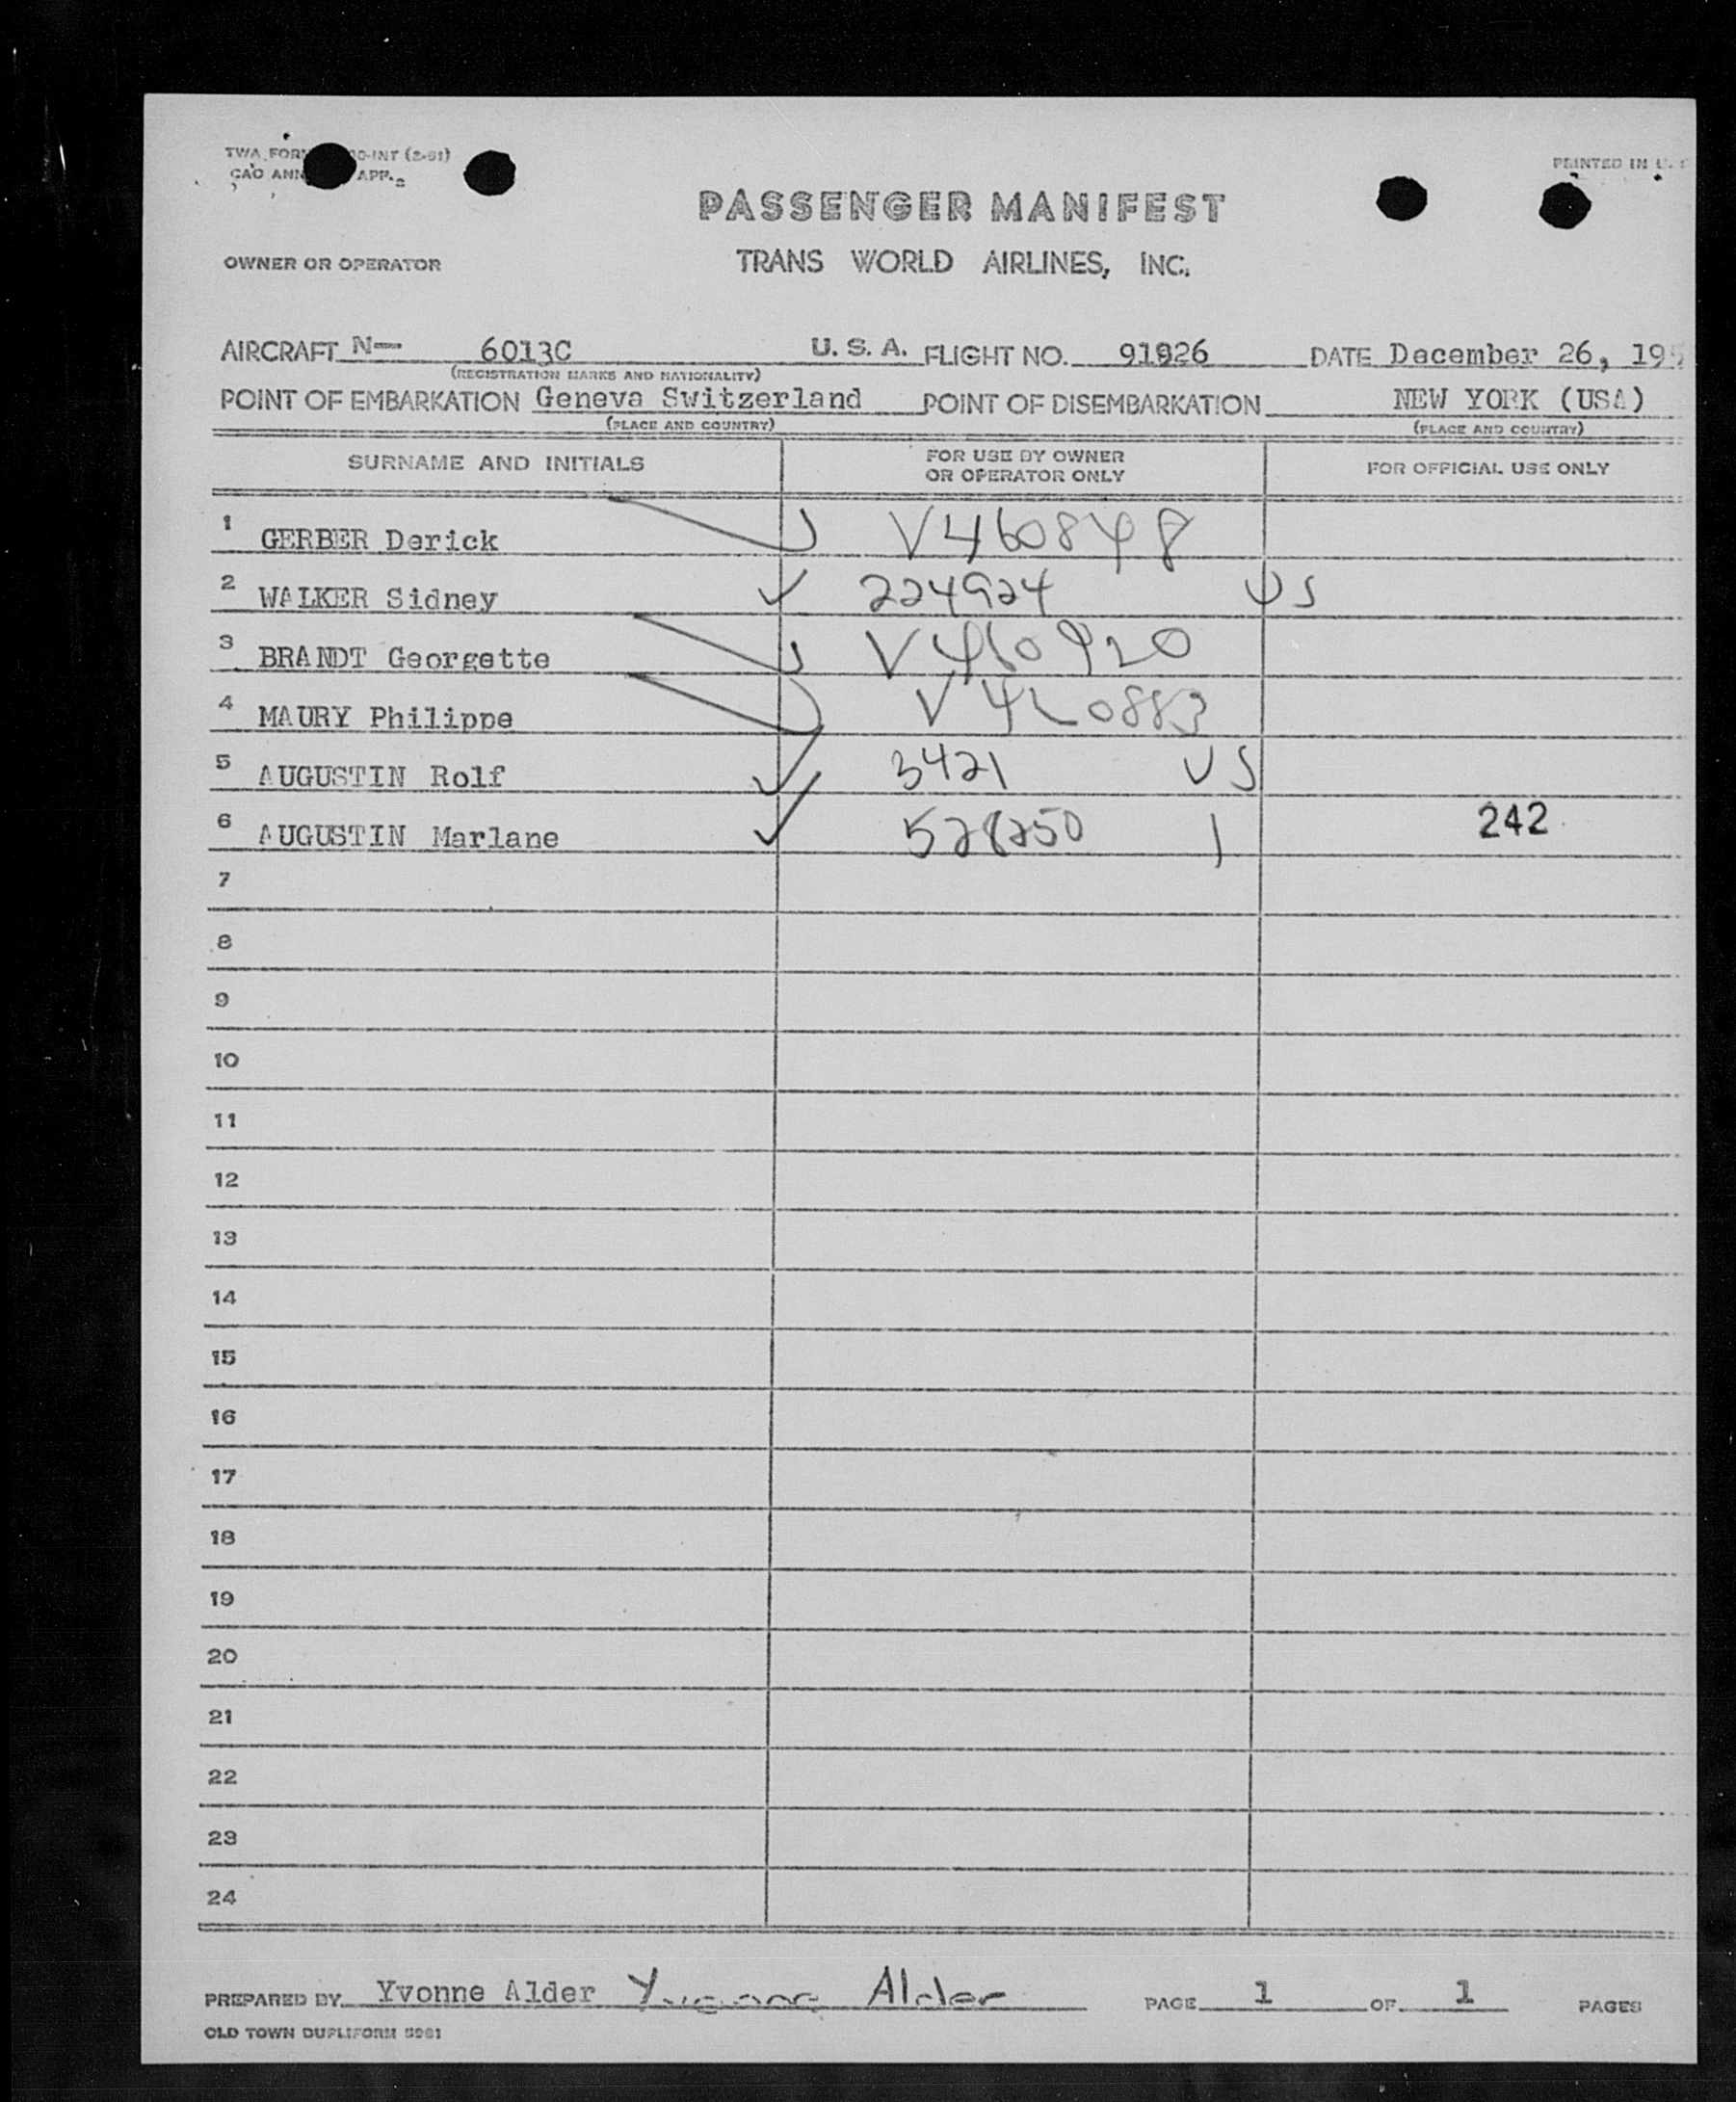 TWA FORM 0-INT (2-51)
CAO ANN APP.
PRINTED IN U.
PASSENGER MANIFEST
OWNER OR OPERATOR
TRANS WORLD AIRLINES, INC.
AIRCRAFT N— 6013C U. S. A. FLIGHT NO. 91926 DATE December 26, 195
(REGISTRATION MARKS AND NATIONALITY)
POINT OF EMBARKATION Geneva Switzerland POINT OF DISEMBARKATION NEW YORK (USA)
(PLACE AND COUNTRY) (PLACE AND COUNTRY)
SURNAME AND INITIALS FOR USE BY OWNER OR OPERATOR ONLY FOR OFFICIAL USE ONLY
1 GERBER Derick V460848
2 WALKER Sidney 224924 US
3 BRANDT Georgette V460920
4 MAURY Philippe V420883
5 AUGUSTIN Rolf 3421 US
6 AUGUSTIN Marlane 528250 242
7
8
9
10
11
12
13
14
15
16
17
18
19
20
21
22
23
24
PREPARED BY Yvonne Alder Yvonne Alder PAGE 1 OF 1 PAGES
OLD TOWN DUPLIFORM